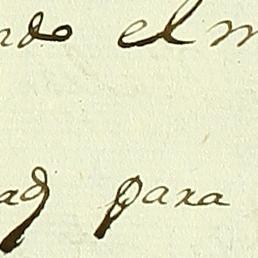 ndo el m
ad para